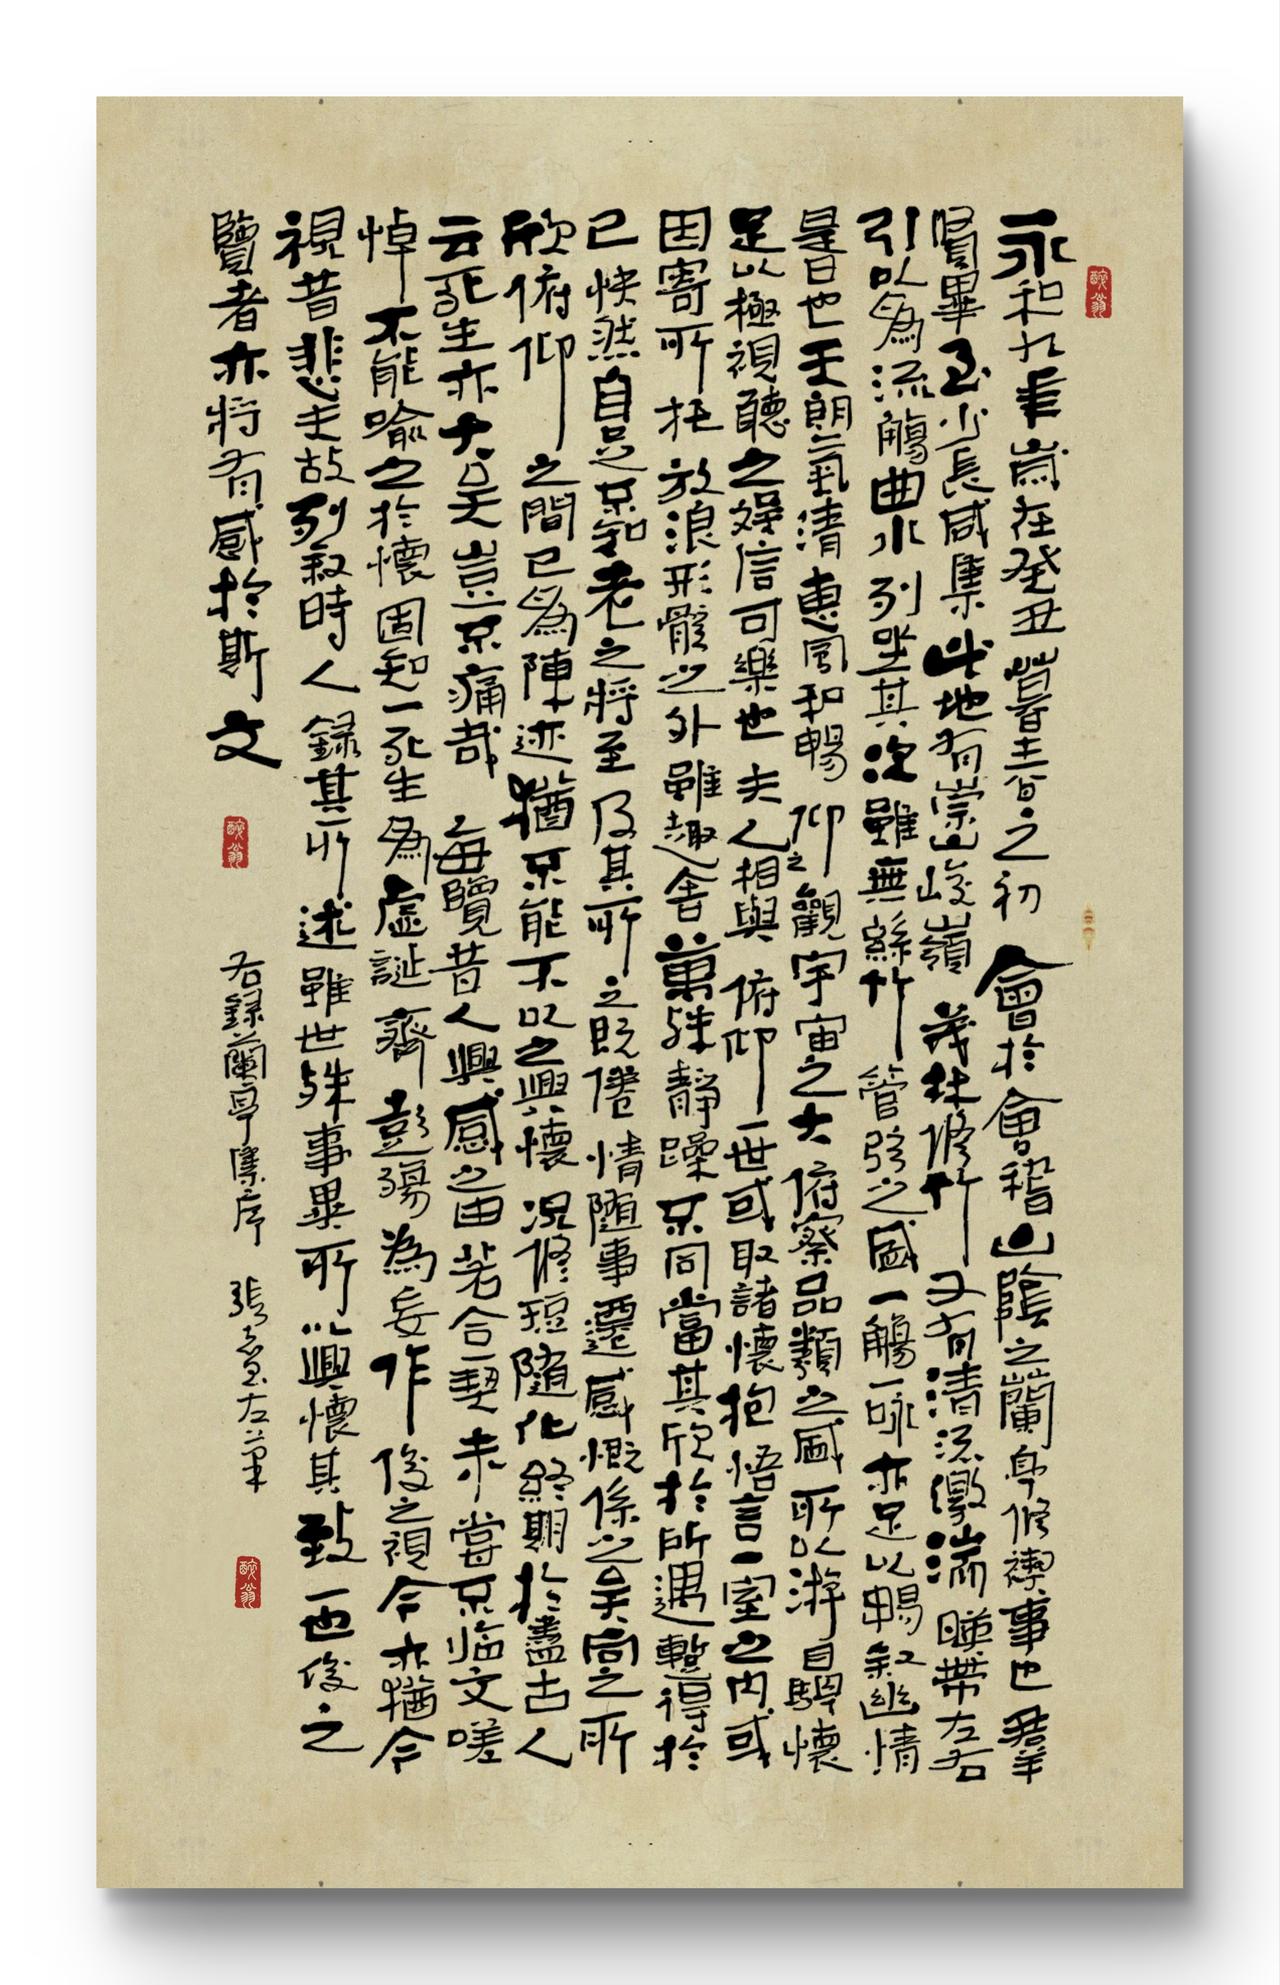 永和九年歲在癸丑暮春之初會於會稽山陰之蘭亭修禊事也羣
賢畢至少長咸集此地有崇山峻嶺茂林修竹又有清流激湍暎帶左右
引以為流觴曲水列坐其次雖無絲竹管弦之盛一觴一咏亦足以暢叙幽情
是日也天朗氣清惠風和暢仰之觀宇宙之大俯察品類之盛所以游目騁懷
足以極視聽之娛信可樂也夫人相與俯仰一世或取諸懷抱悟言一室之內或
因寄所托放浪形骸之外雖趣舍萬殊静躁不同當其欣於所遇暫得於
己快然自足不知老之將至及其所之既倦情随事遷感慨係之矣向之所
欣俯仰之間已為陳迹猶不能不以之興懷況修短随化終期於盡古人
云死生亦大矣豈不痛哉每覽昔人興感之由若合一契未嘗不臨文嗟
悼不能喻之於懷固知一死生為虛誕齊彭殤為妄作後之視今亦猶今
視昔悲夫故列叙時人録其所述雖世殊事異所以興懷其致一也後之
覽者亦將有感於斯文
右録蘭亭集序 張 左筆
醉翁
醉翁
醉翁